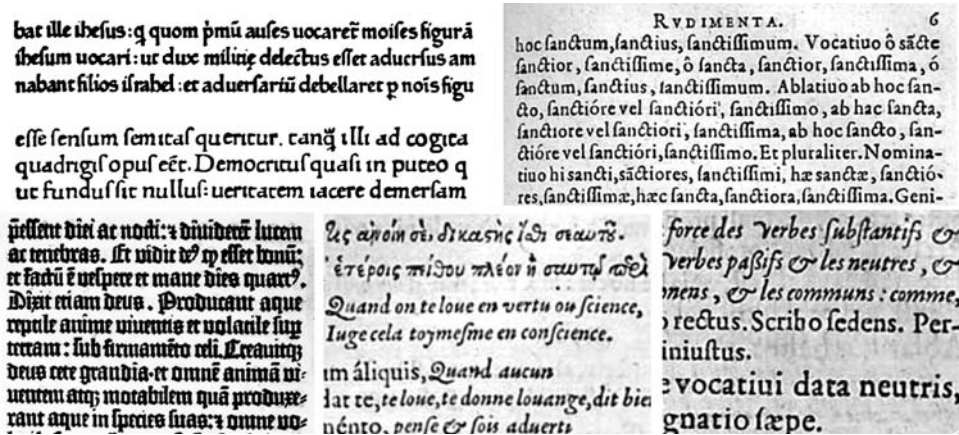 bat ille ihesus: q̃ quom p̃mũ auses uocaret̃ moises figurã
ihesum uocari: ut dux militię delectus esset aduersus am
nabant filios israhel: et aduersariũ debellaret p nois figu
esse sensum semitas queritur. tanq̃ illi ad cogita
quadrigis opus eēt. Democritus quasi in puteo q
ut fundus sit nullus: ueritatem iacere demersam
RVDIMENTA. 6
hoc sanctum, sanctius, sanctissimum. Vocatiuo ô sãcte
sanctior, sanctissime, ô sancta, sanctior, sanctissima, ó
sanctum, sanctius, sanctissimum. Ablatiuo ab hoc san-
cto, sanctióre vel sanctióri, sanctissimo, ab hac sancta,
sanctiore vel sanctiori, sanctissima, ab hoc sancto, san-
ctióre vel sanctióri, sanctissimo. Et pluraliter. Nomina-
tiuo hi sancti, sãctiores, sanctissimi, hæ sanctæ, sanctió-
res, sanctissimæ, hæc sancta, sanctiora, sanctissima. Geni-
p̃essent diei ac nocti: ⁊ diuiderēt lucem
ac tenebras. Et vidit de⁹ ꝙ esset bonũ:
et factũ ē vespere et mane dies quart⁹.
Dixit etiam deus. Producant aque
reptile anime viuentis et volatile sup
terram: sub firmamēto celi. Creauitqꝫ
deus cete grandia· et omnē animã vi-
uentem atqꝫ motabilem quã produxe-
rant aque in species suas: ⁊ omne vo-
Quand on te loue en vertu ou science,
Iuge cela toymesme en conscience.
um áliquis, Quand aucun
dat te, te loue, te donne louange, dit bien
pénto, pense & sois aduerti
force des verbes substantifs &
verbes passifs & les neutres, &
onens, & les communs: comme,
rectus. Scribo sedens. Per-
iniustus.
e vocatiui data neutris,
gnatio sæpe.